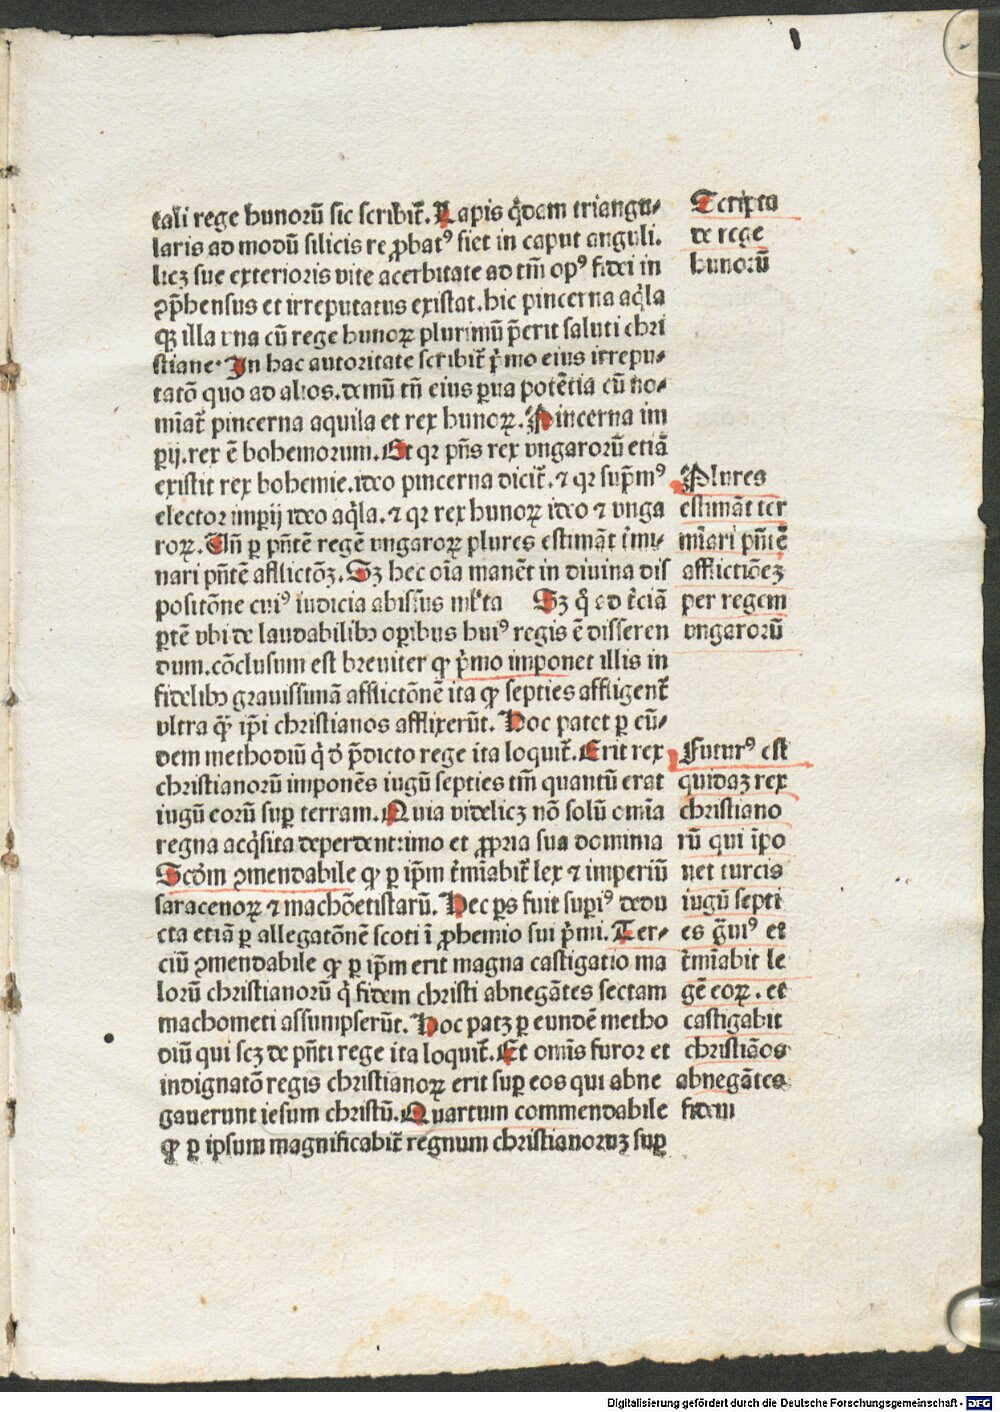 tali rege hunorū sic scribit̄. Lapis q̇dam triangu-
laris ad modū silicis reꝓbatꝰ fiet in caput anguli.
licꝫ sue exterioris vite acerbitate ad tm̄ opꝰ fidei in
ꝯp̄hensus et irreputatus existat. hic pincerna aq̇la
qꝫ illa vna cū rege hunoꝝ plurimū p̄erit saluti chri
stiane. In hac autoritate scribit̄ p̄mo eius irrepu-
tatō quo ad alios. demū tn̄ eius ꝑua potētia cū no-
mīat̄ pincerna aquila et rex hunoꝝ. Pincerna im
ꝑij. rex ē bohemorum. Et qr pn̄s rex vngarorū etiā
existit rex bohemie. ideo pincerna dicit̄. ⁊ qr sup̄mꝰ
elector imꝑij ideo aq̇la. ⁊ qr rex hunoꝝ ideo ⁊ vnga
roꝝ. Un̄ ꝑ pn̄tē regē vngaroꝝ plures estimāt t̄mi-
nari pn̄tē afflictōꝫ. Sꝫ hec oīa manēt in diuina dis
positōne cuiꝰ iudicia abissus ml̄ta Sꝫ q̇ ad t̄ciā
ꝑtē vbi de laudabilibꝫ oꝑibus huiꝰ regis ē disseren
dum. cōclusum est breuiter ꝙ p̄mo imponet illis in
fidelibꝫ grauissimā afflictōnē ita ꝙ septies affligent̄
vltra q̄ȝ ip̄i christianos affixerūt. Hoc patet ꝑ eū-
dem methodiū q̇ d̄ p̄dicto rege ita loquit̄. Erit rex
christianorū imponēs iugū septies tm̄ quantū erat
iugū eorū suꝑ terram. Quia videlicꝫ nō solū omīa
regna acq̇sita deperdent: imo et ꝓpria sua dominia
Scdm̄ ꝯmendabile ꝙ ꝑ ip̄m t̄mīabit̄ lex ⁊ imperiū
saracenoꝝ ⁊ machōetistarū. Hec ꝑs fuit supiꝰ dedu
cta etiā ꝑ allegatōnē scoti ī ꝓhemio sui p̄mi. Ter-
ciū ꝯmendabile ꝙ ꝑ ip̄m erit magna castigatio ma
lorū christianorū q̇ fidem christi abnegātes sectam
machometi assumpserūt. Hoc patꝫ ꝑ eundē metho
diū qui scꝫ de pn̄ti rege ita loquit̄. Et omīs furor et
indignatō regis christianoꝝ erit suꝑ eos qui abne
gauerunt iesum christū. Quartum commendabile
ꝙ ꝑ ipsum magnificabit̄ regnum christianoruꝫ suꝑ
Scripta
de rege
hunorū
Plures
estimāt ter
mīari pn̄tē
afflictiōeꝫ
per regem
vngarorū
Futurꝰ est
quidaꝫ rex
christiano
rū qui īpo
net turcis
iugū septi
es g̃uiꝰ et
t̄mīabit le
gē eoꝝ. et
castigabit
christiāos
abnegātes
fidem
Digitalisierung gefördert durch die Deutsche Forschungsgemeinschaft - DFG